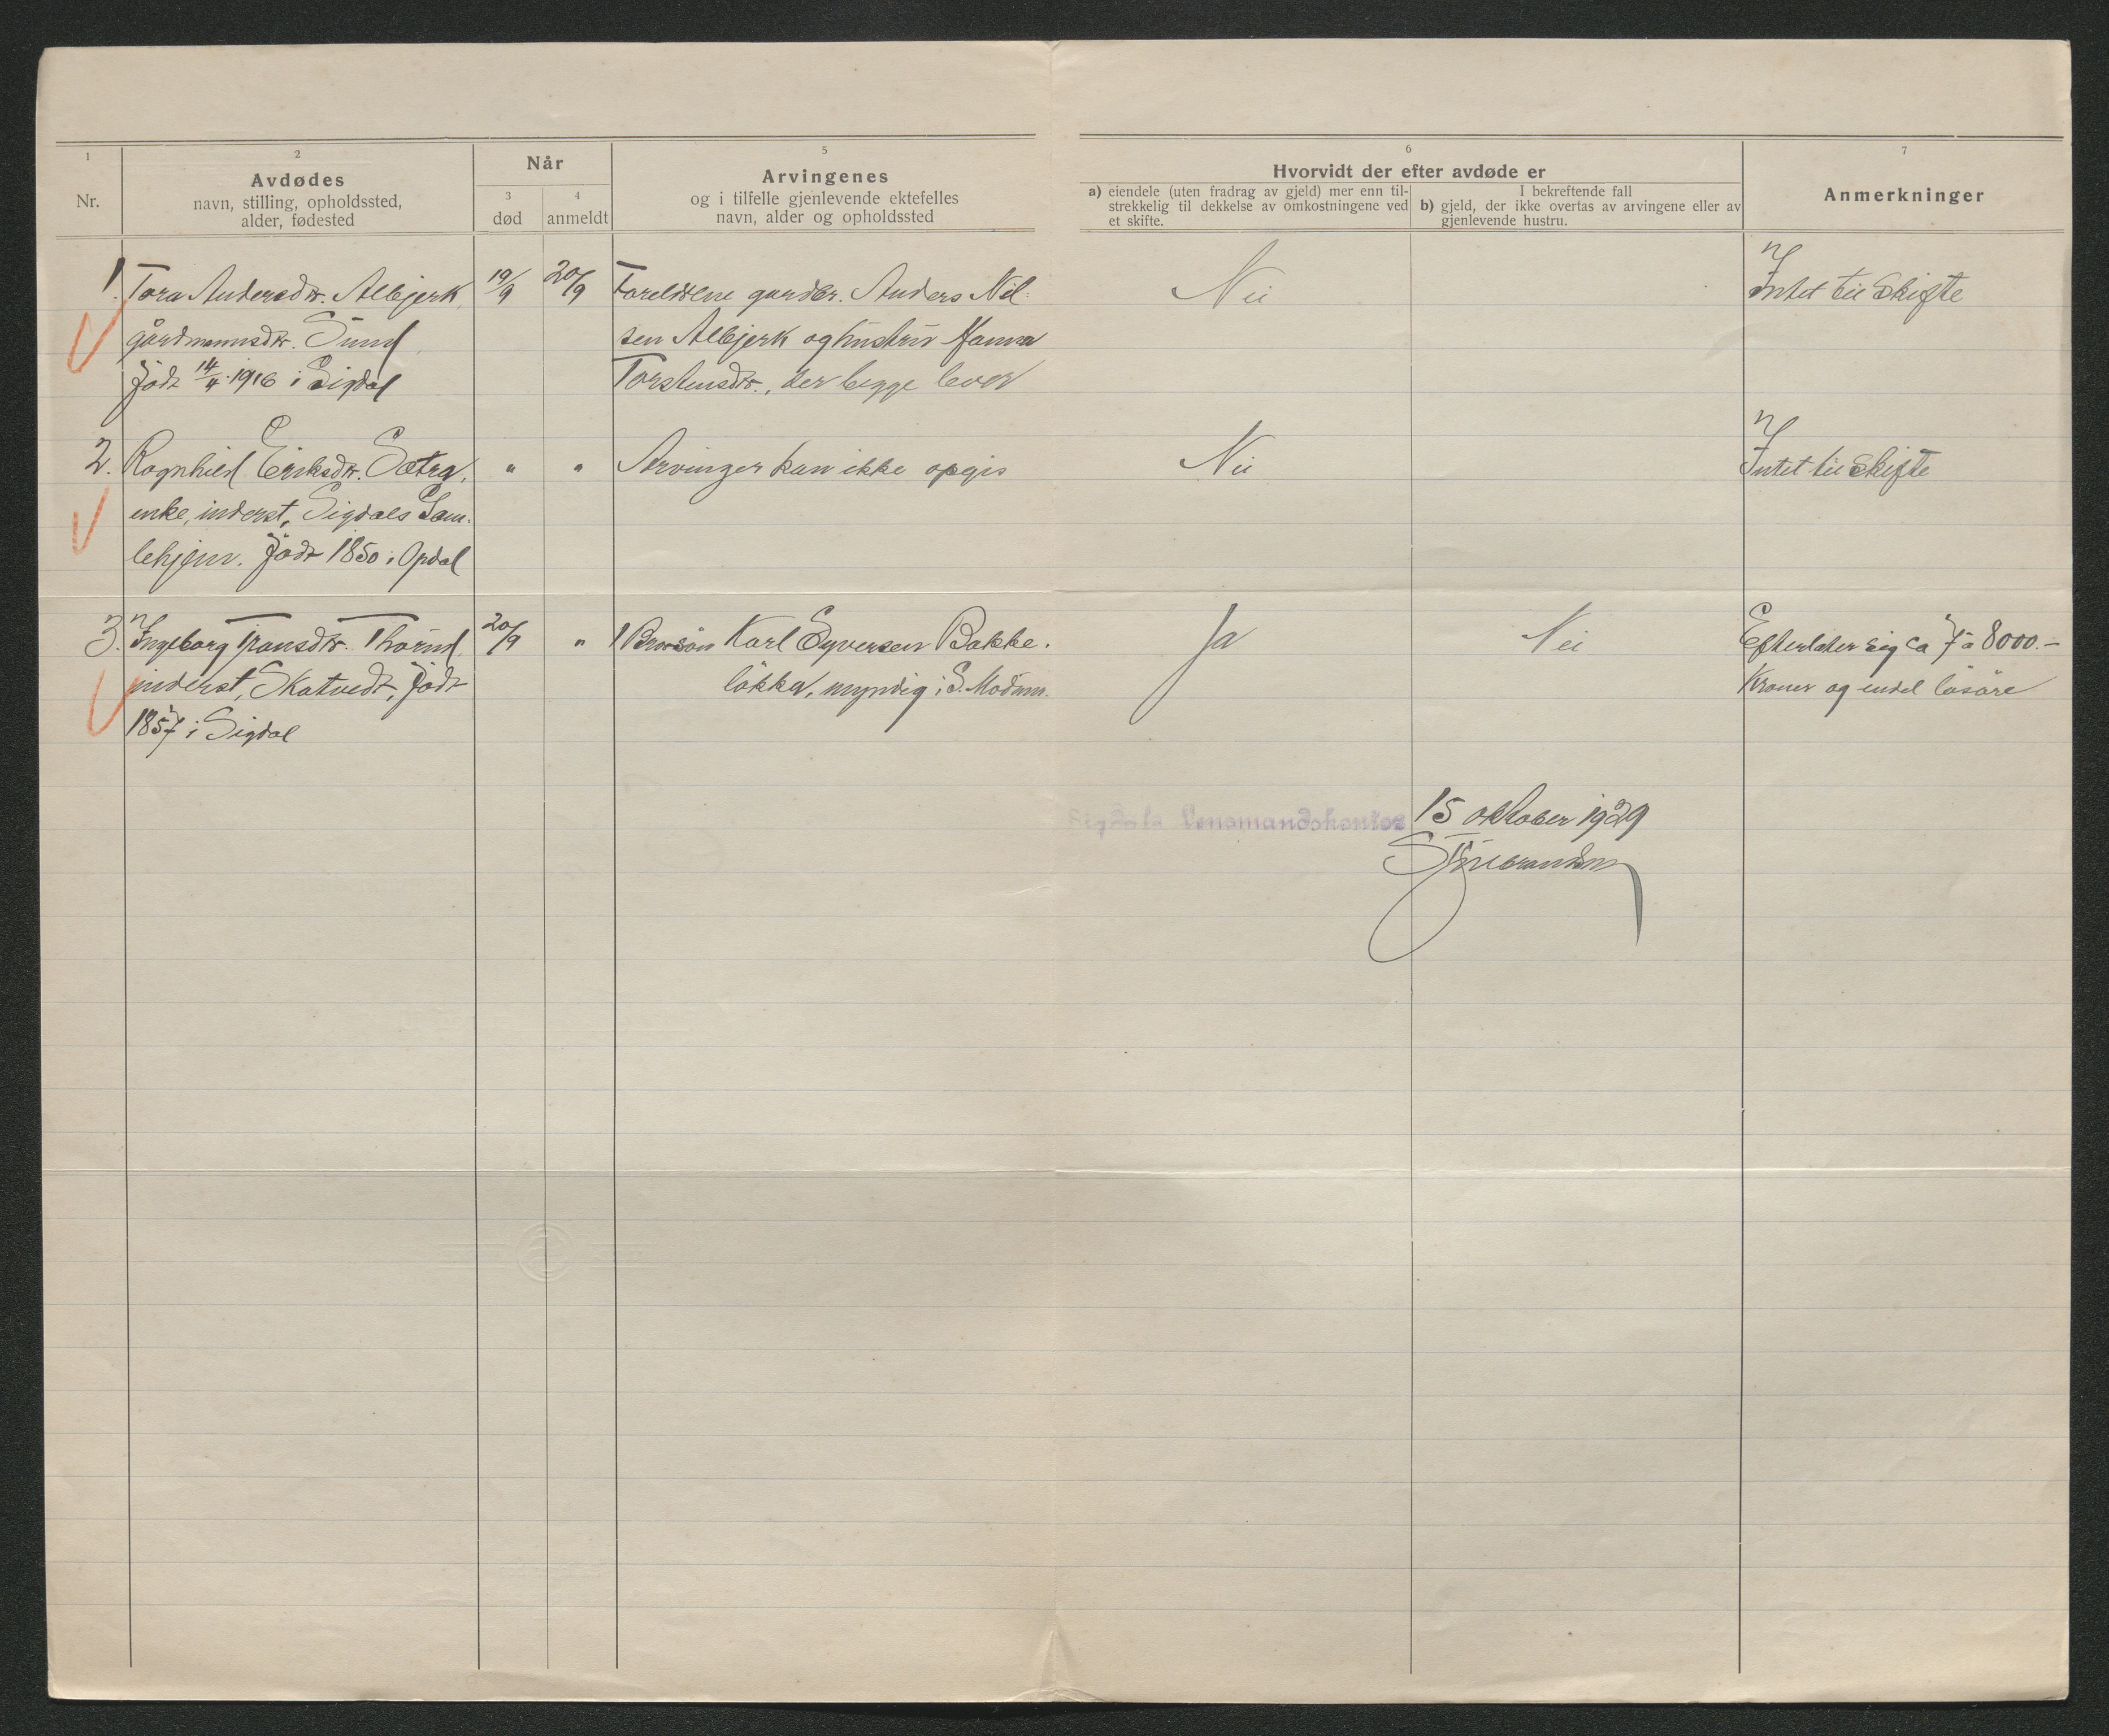 1
Nr.
2
Avdødes
navn, stilling, opholdssted,
alder, fødested
Når
3
død
4
anmeldt
5
Arvingenes
og i tilfelle gjenlevende ektefelles
navn, alder og opholdssted
6
Hvorvidt der efter avdøde er
a) eiendele (uten fradrag av gjeld) mer enn til-
strekkelig til dekkelse av omkostningene ved
et skifte.
I bekreftende fall
b) gjeld, der ikke overtas av arvingene eller av
gjenlevende hustru.
7
Anmerkninger
1. Tora Andersdtr. Albjerk, 19/9 20/9 Foreldrene gardbr. Anders Nil- Nei Intet til Skifte
gårdmannsdtr. Sund, sen Albjerk og hustru Hanna
født 14/4 1916 i Sigdal Torstensdtr., der begge lever
2. Ragnhild Eriksdtr. Sætra, " " Arvinger kan ikke opgis Nei Intet til Skifte
enke, inderst, Sigdals Gam-
lehjem. Født 1850 i Opdal
3. Ingeborg dtr. inderst, Skatvedt, født 20/9 " 1 Brorsøn Karl Syversen Bakke- Ja Nei Efterlater sig ca 7 à 8000.-
løkka, myndig i S. Modum. Kroner og endel løsøre
1857 i Sigdal
Sigdals Lensmandskontor 15 oktober 1929